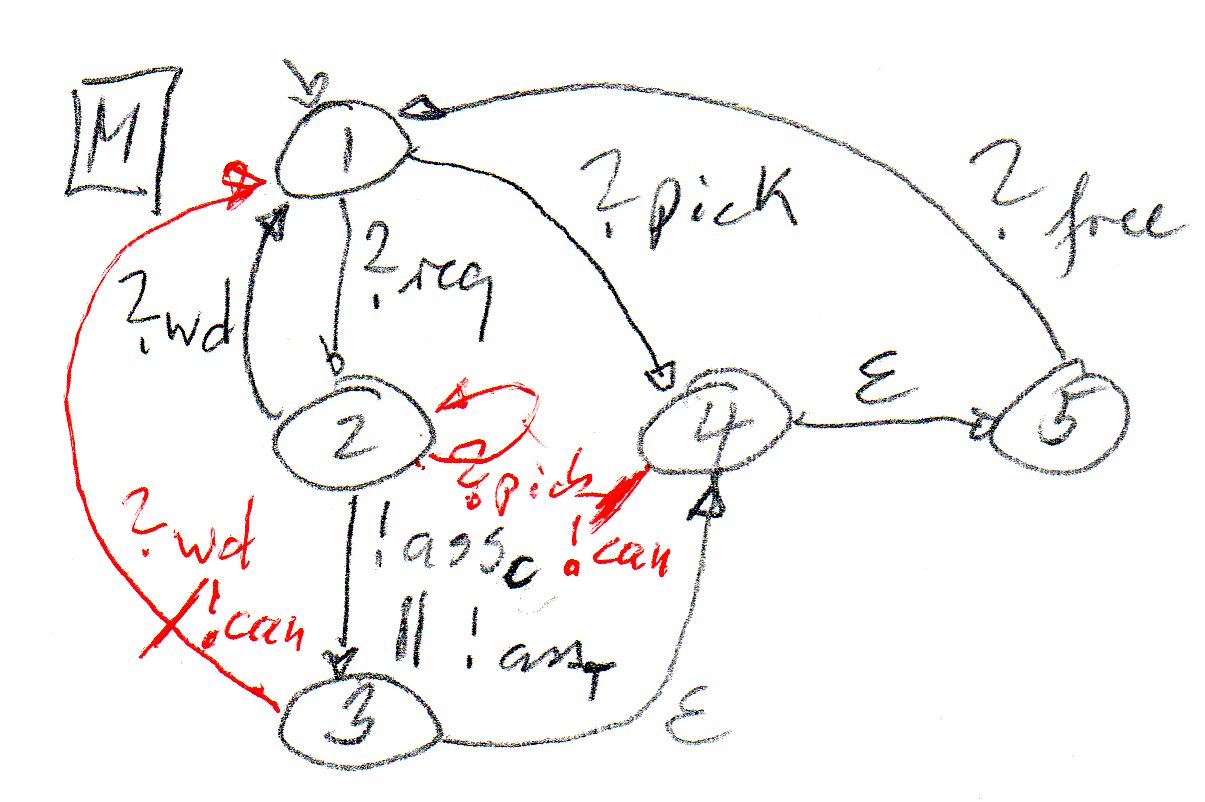 M
1
?pick
?free
?req
?wd
2
4
ε
5
?pick/
!can
?wd
/!can
!ass_C
|| !ass_T
3
ε